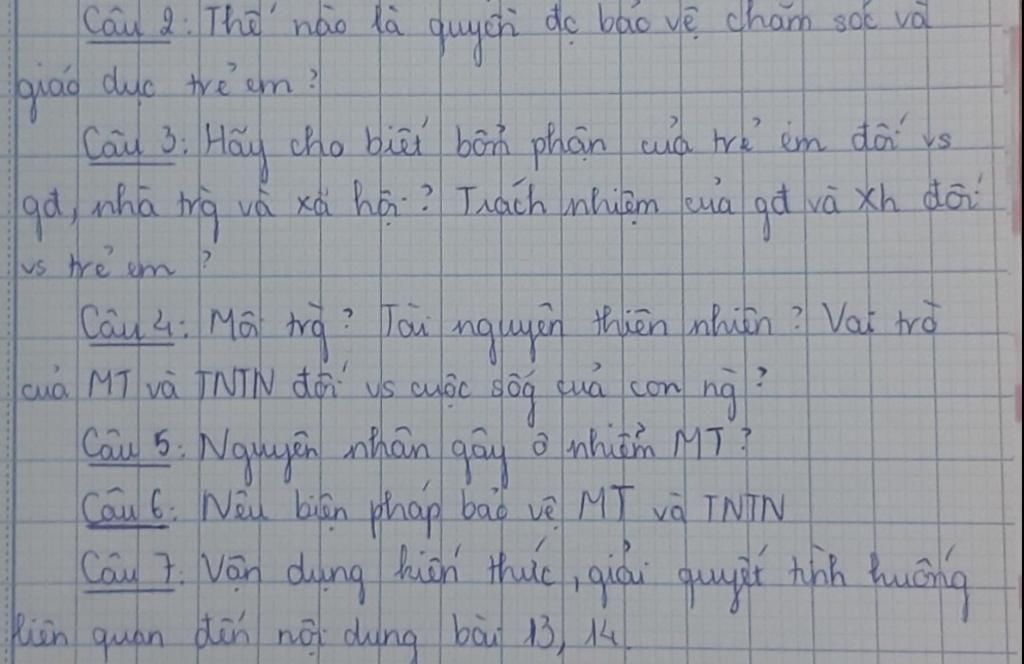 Câu 2: Thế nào là quyền đc bảo vệ chăm sóc và
giáo dục trẻ em?
Câu 3: Hãy cho biết bổn phận của trẻ em đối vs
gđ, nhà trg và xã hội? Trách nhiệm của gđ và xh đối
vs trẻ em?
Câu 4: Môi trg? Tài nguyên thiên nhiên? Vai trò
của MT và TNTN đối vs cuộc sốg của con ng?
Câu 5: Nguyên nhân gây ô nhiễm MT?
Câu 6: Nêu biện pháp bảo vệ MT và TNTN
Câu 7: Vận dụng kiến thức, giải quyết tình huống
liên quan đến nội dung bài 13, 14.